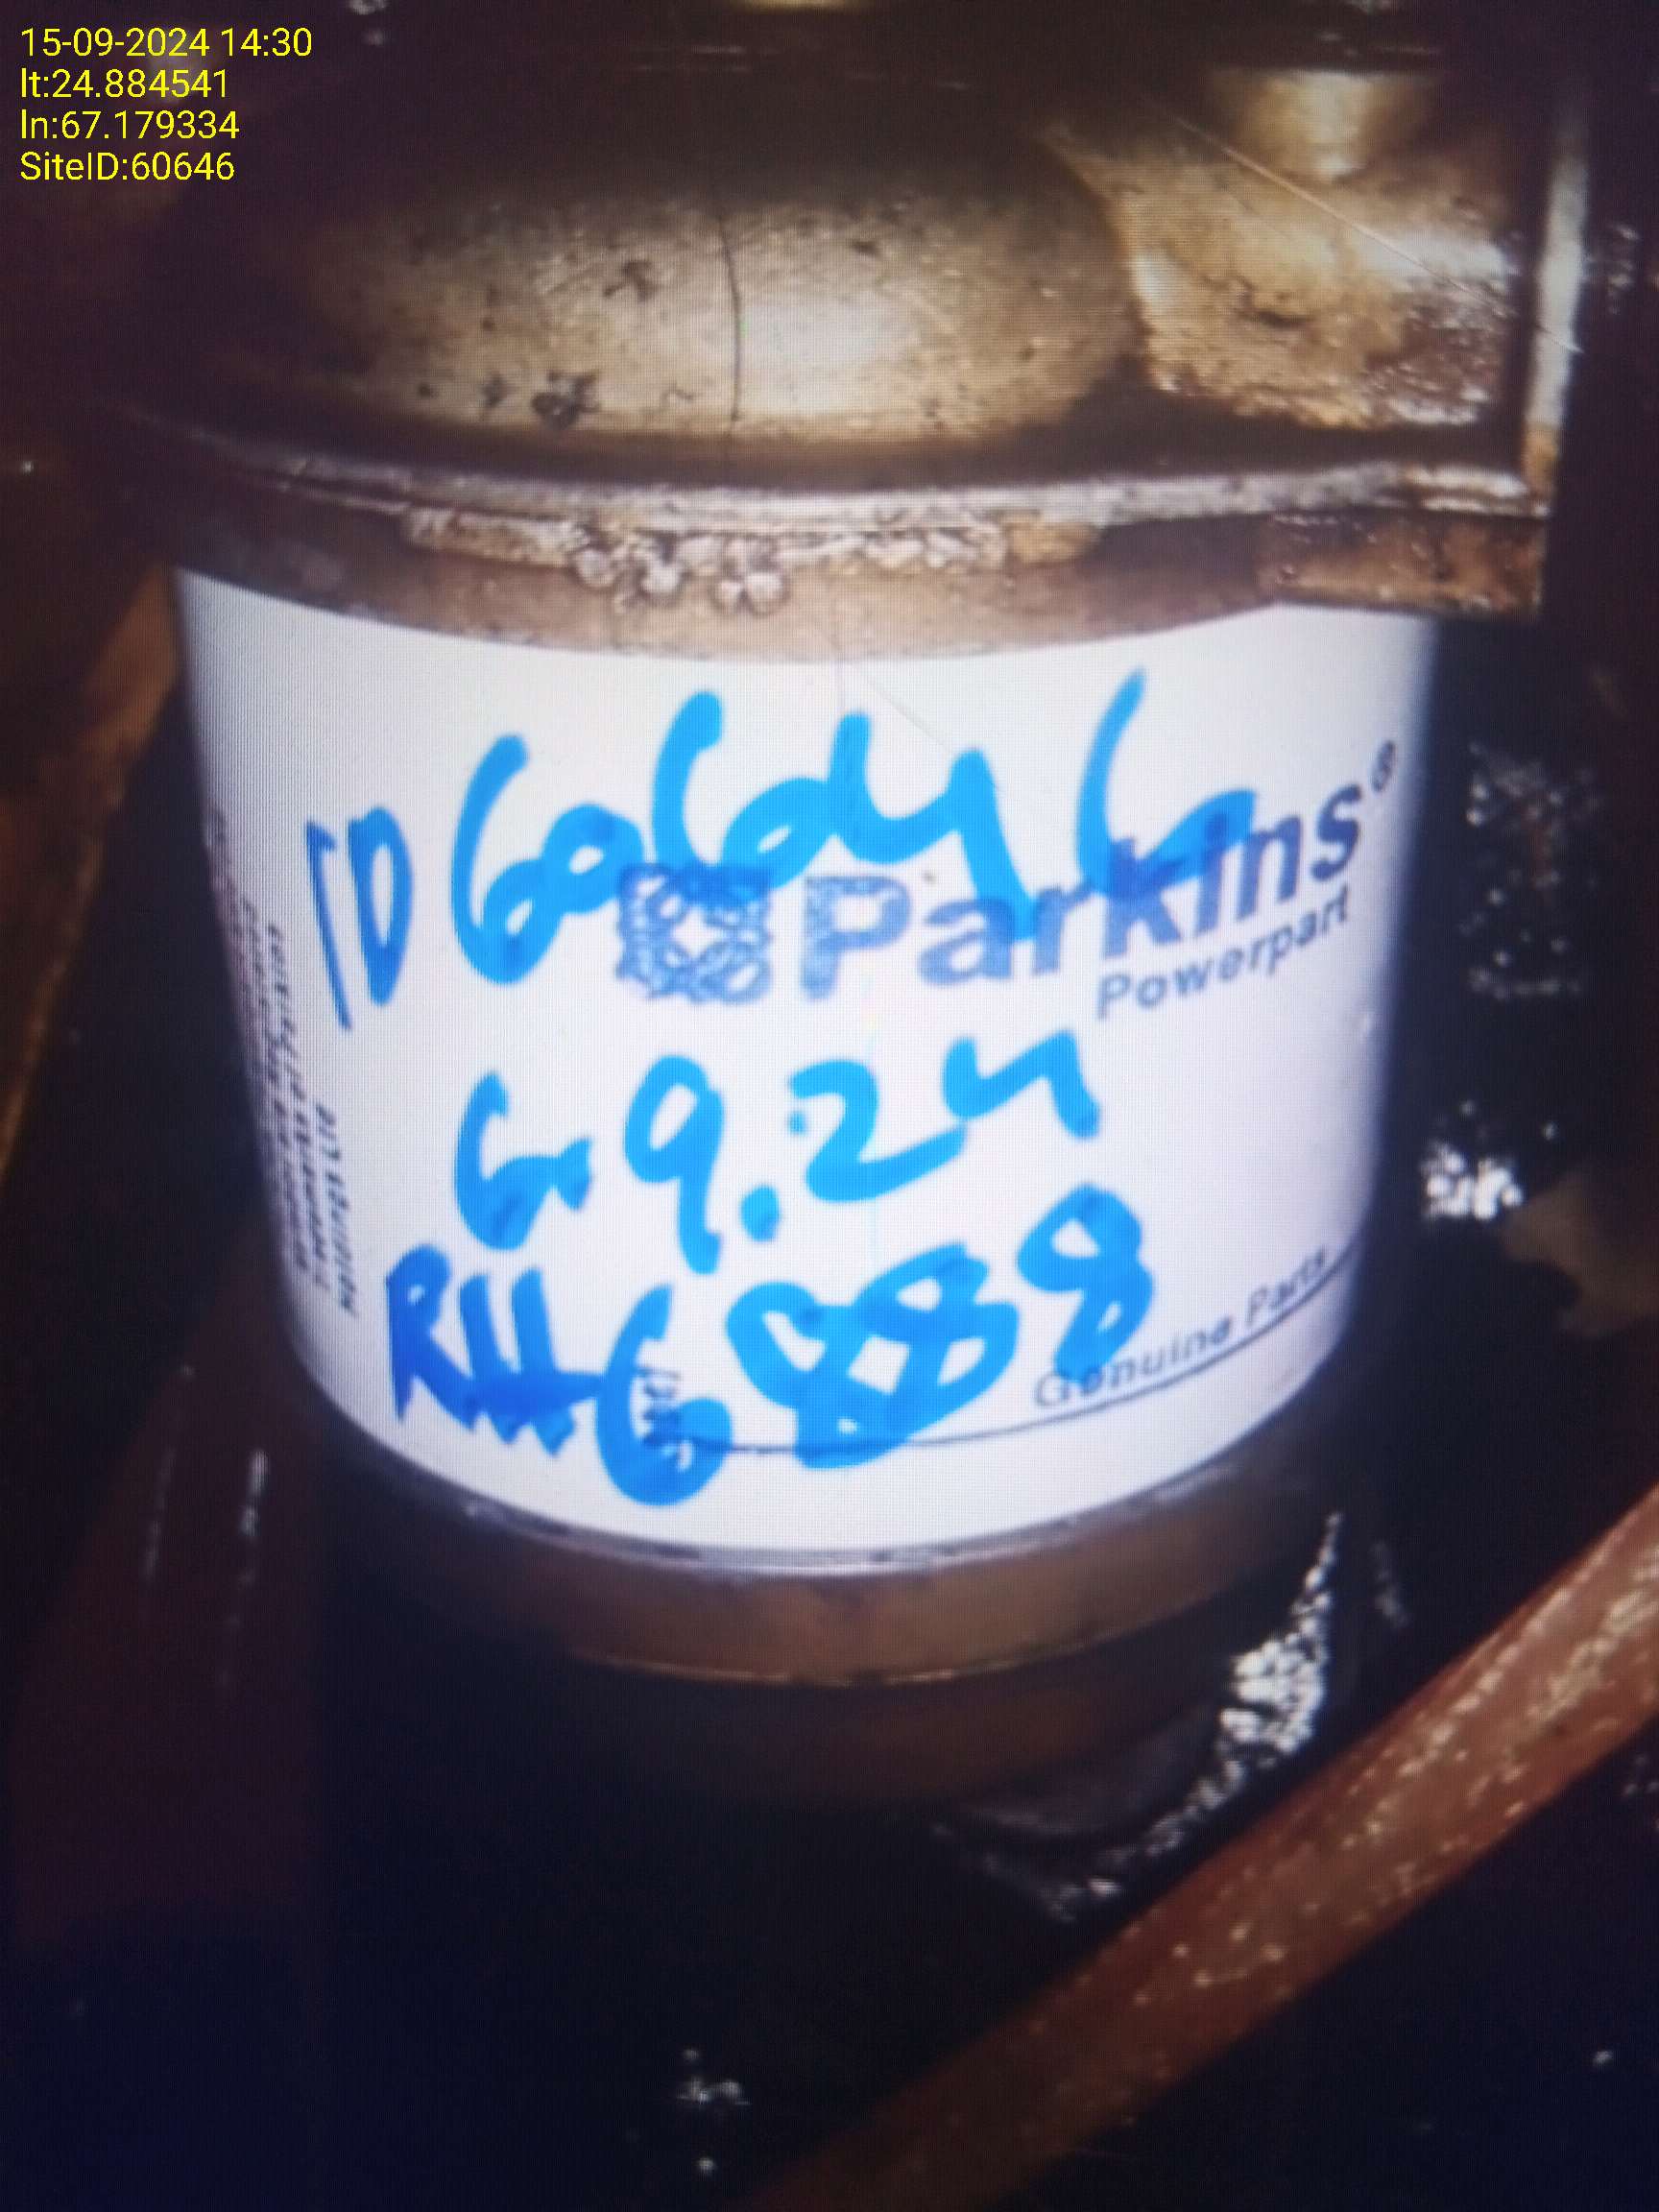 15-09-2024 14:30
lt:24.884541
ln:67.179334
SiteID:60646
ID 60646
Parkins®
Powerpart
G 9.24
RH 6888
Genuine Parts